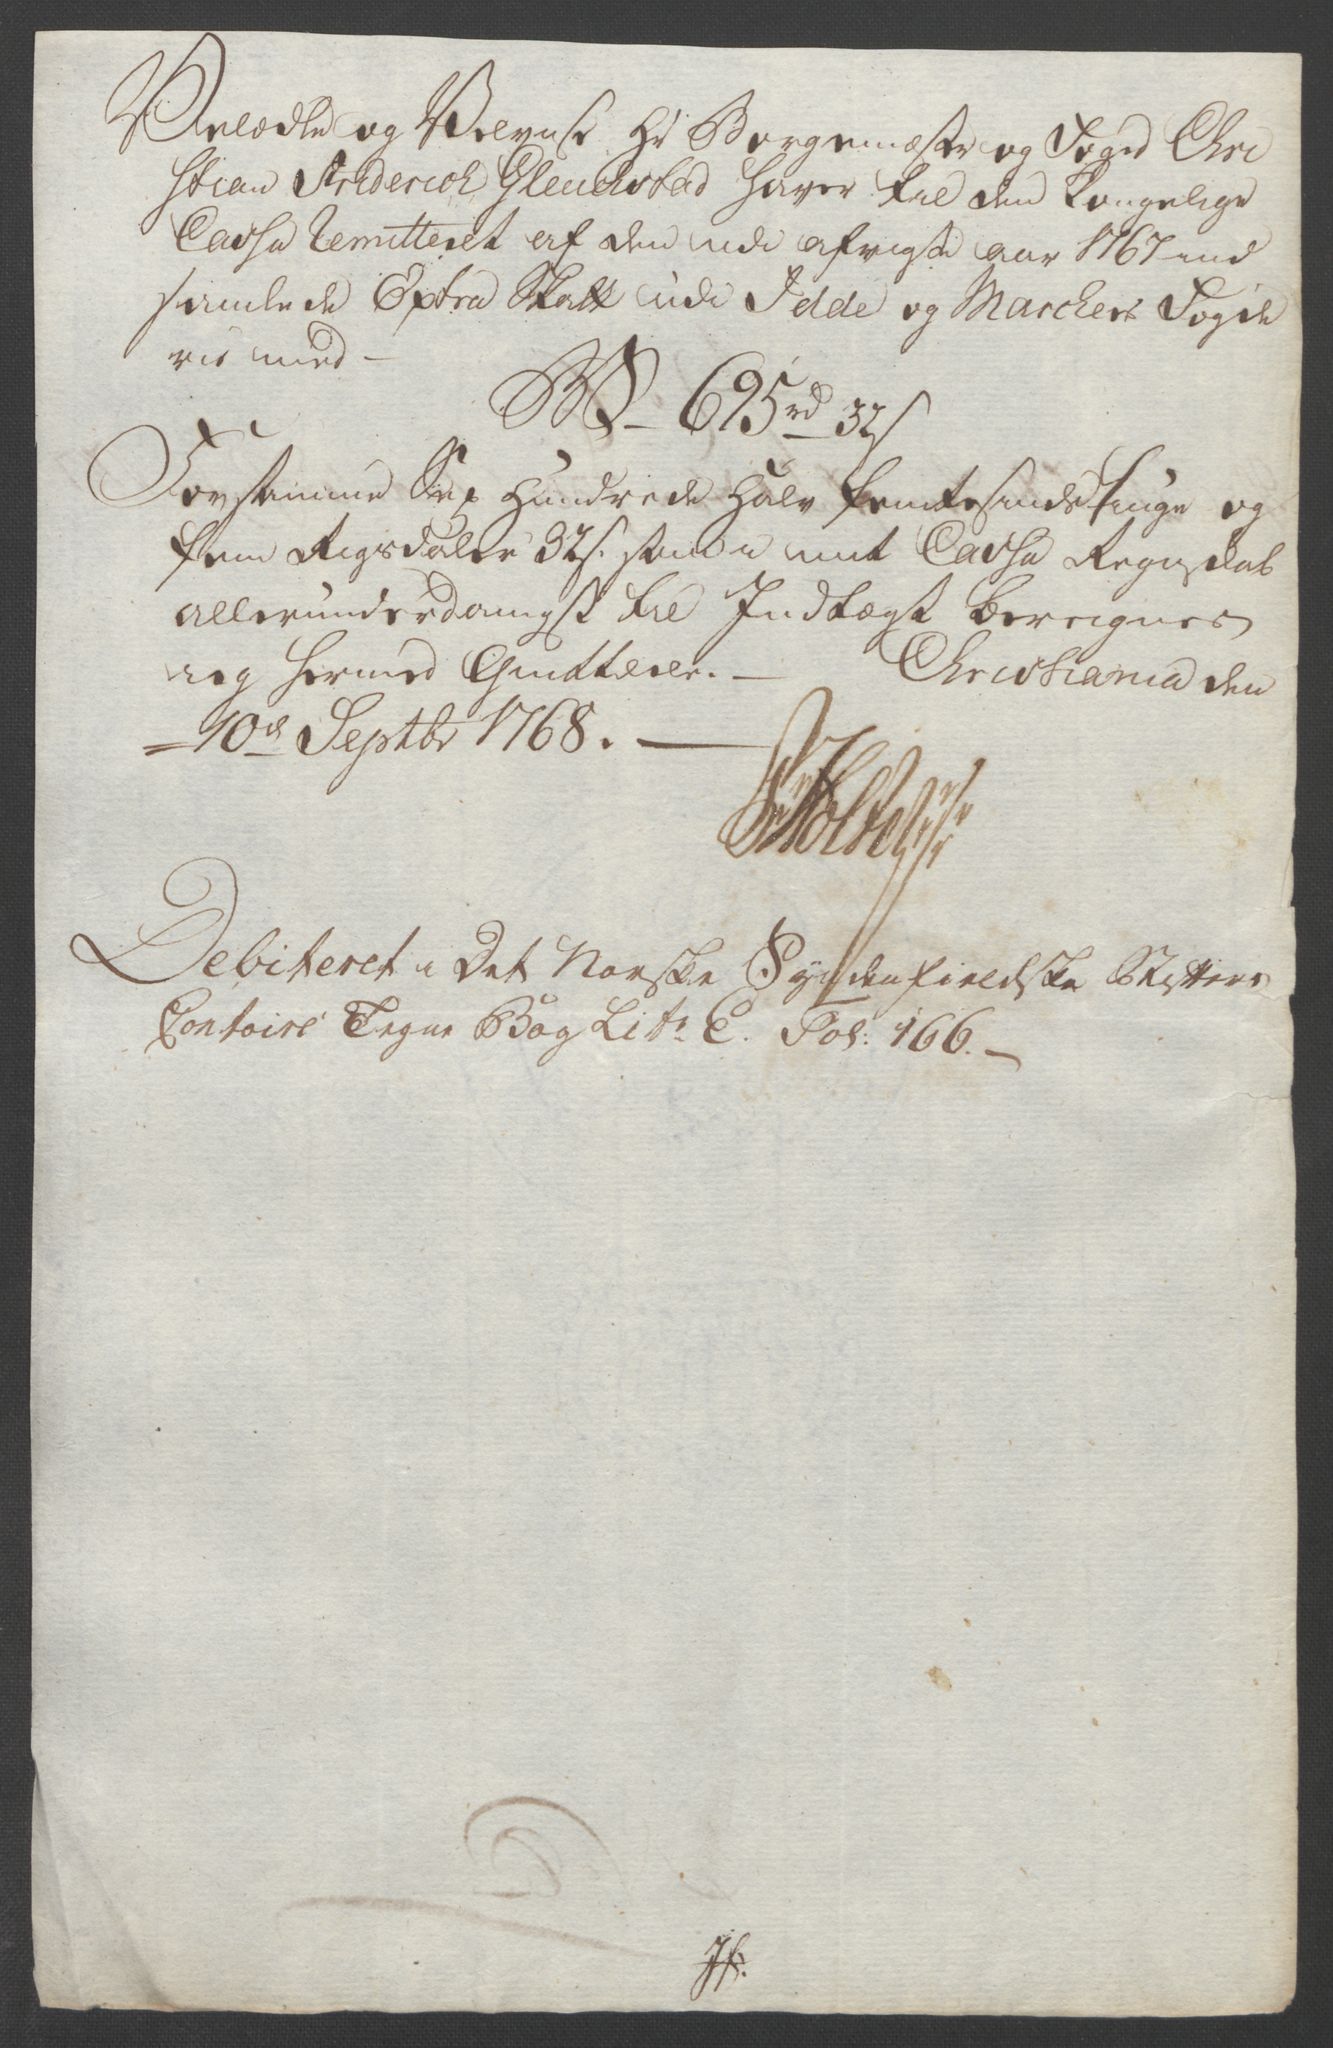 Velædle og Velviise Hr Borgemæster og Foged Chri
stian Friderich Gleuchstad haver til den Kongelige
Cassa Remitteret af den udi afvigte aar 1767 ind
samlede Extra Skatt udi Idde og Marckers Fogde
rie med —
695 rd 32 s
Forstamme Sex Hundrede Halv femtesindstiuge og
fem Rigsdaler 32 s. som i mit Cassa Regnskab
allerunderdanigst til Indtægt bereignes
ieg hermed Qvitterer. — Christiania den
10de Septbr 1768. —
Holte
Debiteret i Det Norske Syndenfieldske Stifters
Contoirs Tegne Bog Litr. C. Fol: 166. —